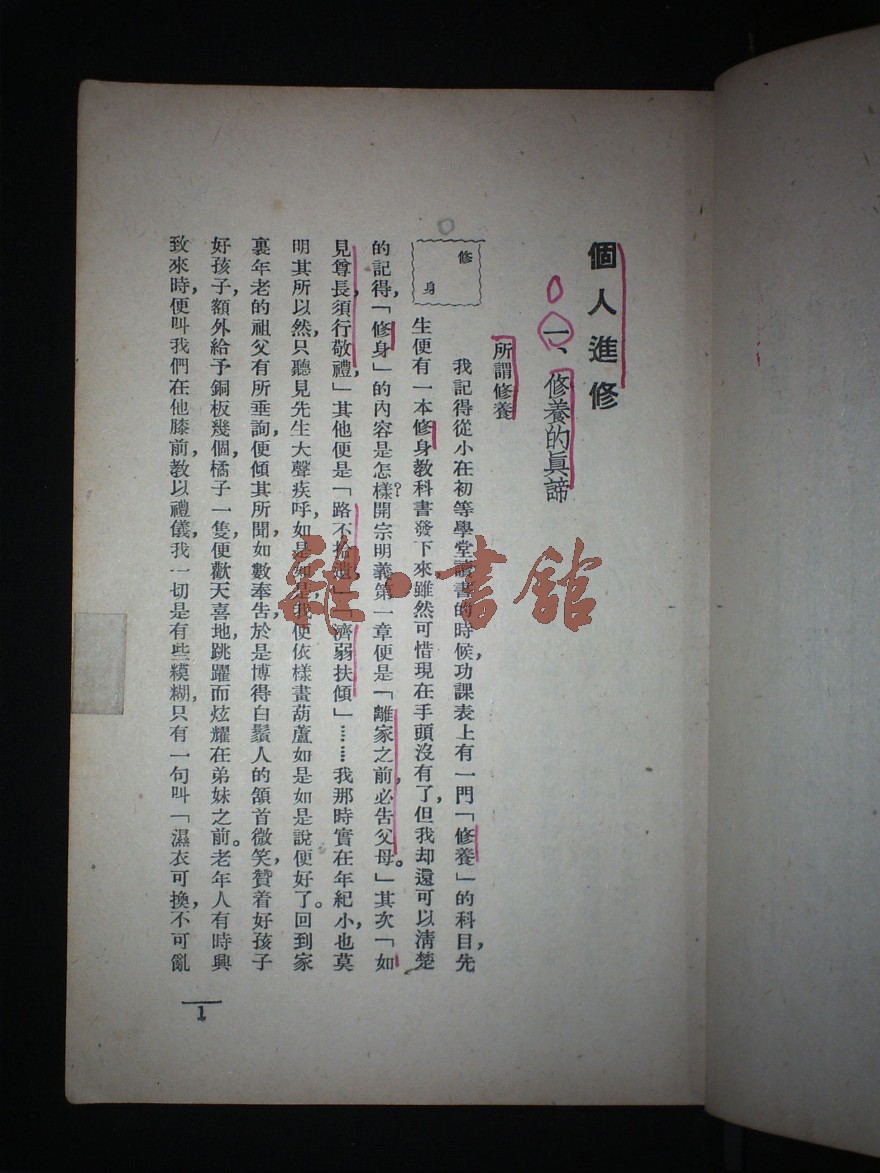 個人進修
一、修養的眞諦
所謂修養
修身
我記得從小在初等學堂讀書的時候，功課表上有一門「修養」的科目，先
生便有一本修身教科書發下來，雖然可惜現在手頭沒有了，但我却還可以淸楚
的記得，「修身」的內容是怎樣？開宗明義第一章便是「離家之前，必告父母。」其次「如
見尊長，須行敬禮，」其他便是「路不拾遺，」「濟弱扶傾」……我那時實在年紀小，也莫
明其所以然，只聽見先生大聲疾呼，如是如是，我便依樣畫葫蘆如是如是說便好了。回到家
裏年老的祖父有所垂詢，便傾其所聞，如數奉告，於是博得白鬚人的頷首微笑，贊着好孩子
好孩子，額外給予銅板幾個，橘子一隻，便歡天喜地，跳躍而炫耀在弟妹之前。老年人有時興
致來時，便叫我們在他膝前，教以禮儀，我一切是有些糢糊，只有一句叫「濕衣可換，不可亂
1
雜·書館